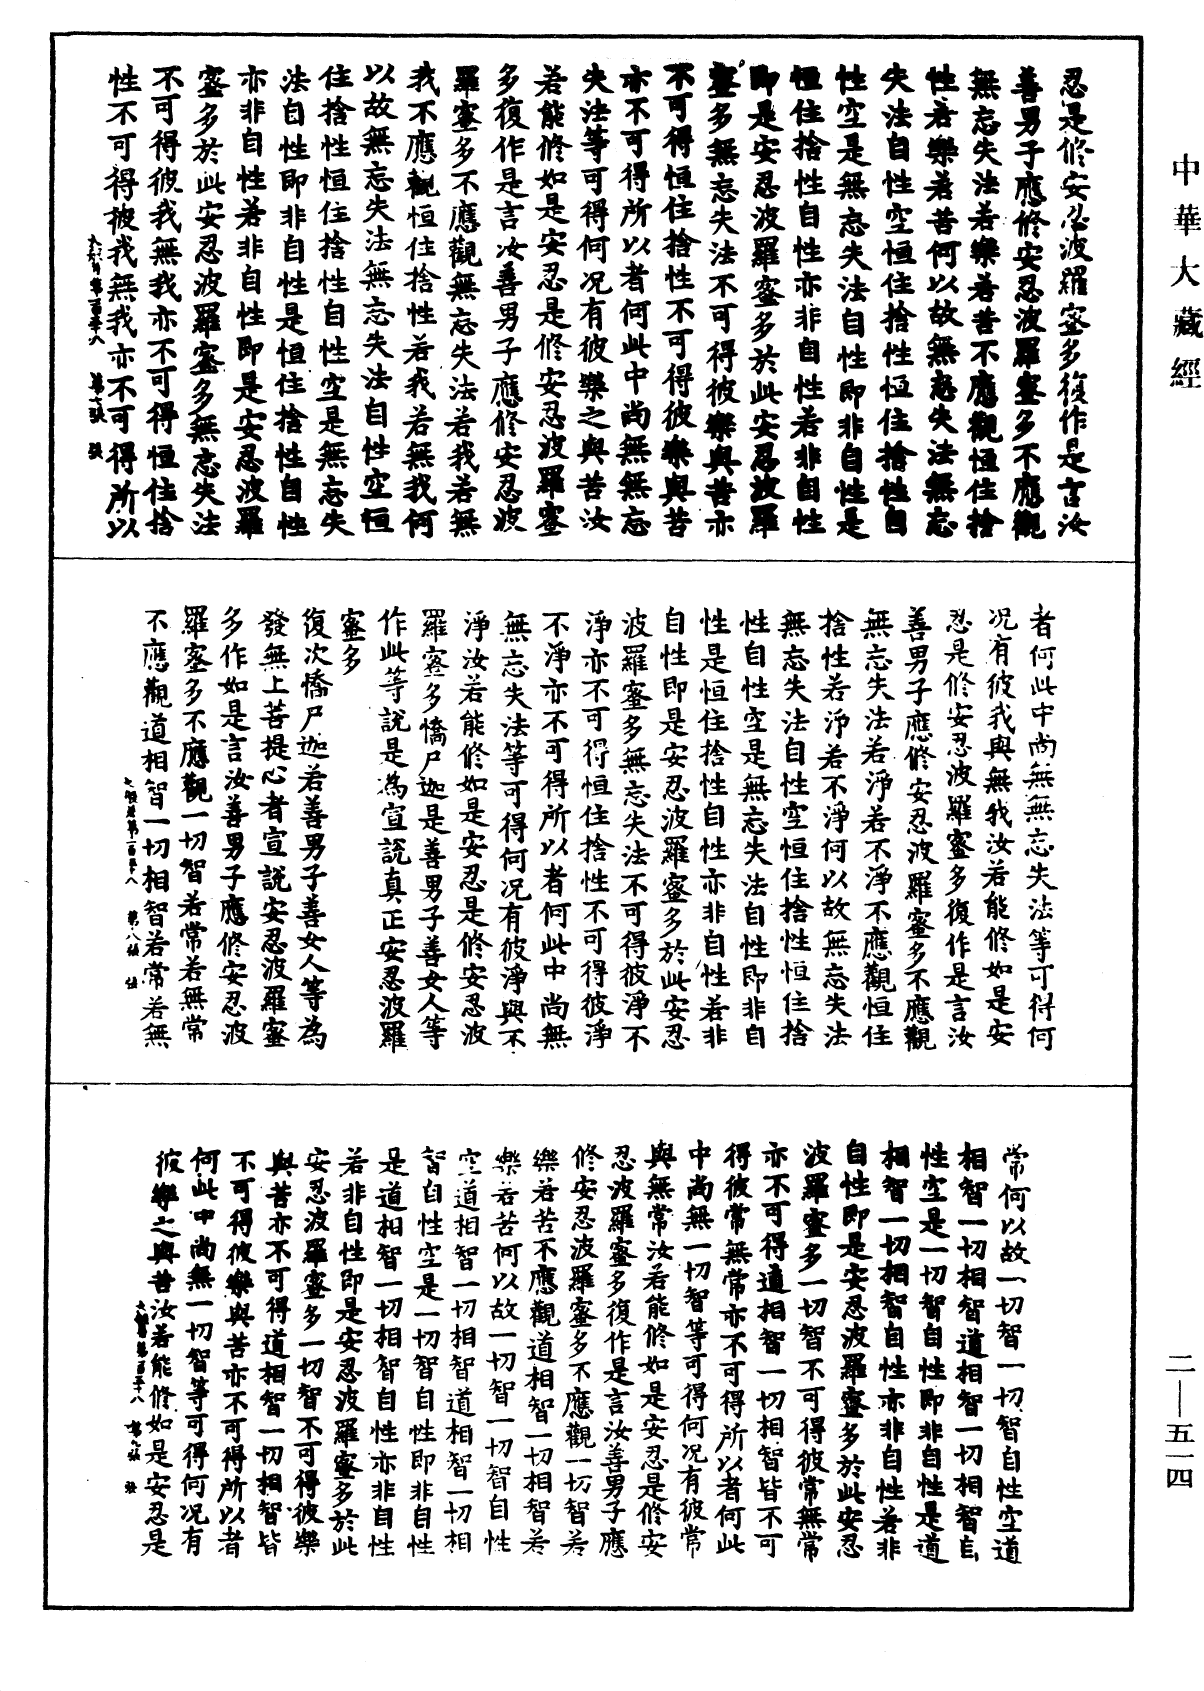 中華大藏經
忍是修安忍波羅蜜多復作是言汝
善男子應修安忍波羅蜜多不應觀
無忘失法若樂若苦不應觀恒住捨
性若樂若苦何以故無忘失法無忘
失法自性空恒住捨性恒住捨性自
性空是無忘失法自性即非自性是
恒住捨性自性亦非自性若非自性
即是安忍波羅蜜多於此安忍波羅
蜜多無忘失法不可得彼樂與苦亦
不可得恒住捨性不可得彼樂與苦
亦不可得所以者何此中尚無無忘
失法等可得何況有彼樂之與苦汝
若能修如是安忍是修安忍波羅蜜
多復作是言汝善男子應修安忍波
羅蜜多不應觀無忘失法若我若無
我不應觀恒住捨性若我若無我何
以故無忘失法無忘失法自性空恒
住捨性恒住捨性自性空是無忘失
法自性即非自性是恒住捨性自性
亦非自性若非自性即是安忍波羅
蜜多於此安忍波羅蜜多無忘失法
不可得彼我無我亦不可得恒住捨
性不可得彼我無我亦不可得所以
者何此中尚無無忘失法等可得何
況有彼我與無我汝若能修如是安
忍是修安忍波羅蜜多復作是言汝
善男子應修安忍波羅蜜多不應觀
無忘失法若淨若不淨不應觀恒住
捨性若淨若不淨何以故無忘失法
無忘失法自性空恒住捨性恒住捨
性自性空是無忘失法自性即非自
性是恒住捨性自性亦非自性若非
自性即是安忍波羅蜜多於此安忍
波羅蜜多無忘失法不可得彼淨不
淨亦不可得恒住捨性不可得彼淨
不淨亦不可得所以者何此中尚無
無忘失法等可得何況有彼淨與不
淨汝若能修如是安忍是修安忍波
羅蜜多憍尸迦是善男子善女人等
作此等說是為宣說真正安忍波羅
蜜多
復次憍尸迦若善男子善女人等為
發無上菩提心者宣說安忍波羅蜜
多作如是言汝善男子應修安忍波
羅蜜多不應觀一切智若常若無常
不應觀道相智一切相智若常若無
常何以故一切智一切智自性空道
相智一切相智道相智一切相智自
性空是一切智自性即非自性是道
相智一切相智自性亦非自性若非
自性即是安忍波羅蜜多於此安忍
波羅蜜多一切智不可得彼常無常
亦不可得道相智一切相智皆不可
得彼常無常亦不可得所以者何此
中尚無一切智等可得何況有彼常
與無常汝若能修如是安忍是修安
忍波羅蜜多復作是言汝善男子應
修安忍波羅蜜多不應觀一切智若
樂若苦不應觀道相智一切相智若
樂若苦何以故一切智一切智自性
空道相智一切相智道相智一切相
智自性空是一切智自性即非自性
是道相智一切相智自性亦非自性
若非自性即是安忍波羅蜜多於此
安忍波羅蜜多一切智不可得彼樂
與苦亦不可得道相智一切相智皆
不可得彼樂與苦亦不可得所以者
何此中尚無一切智等可得何況有
彼樂之與苦汝若能修如是安忍是
二—五一四